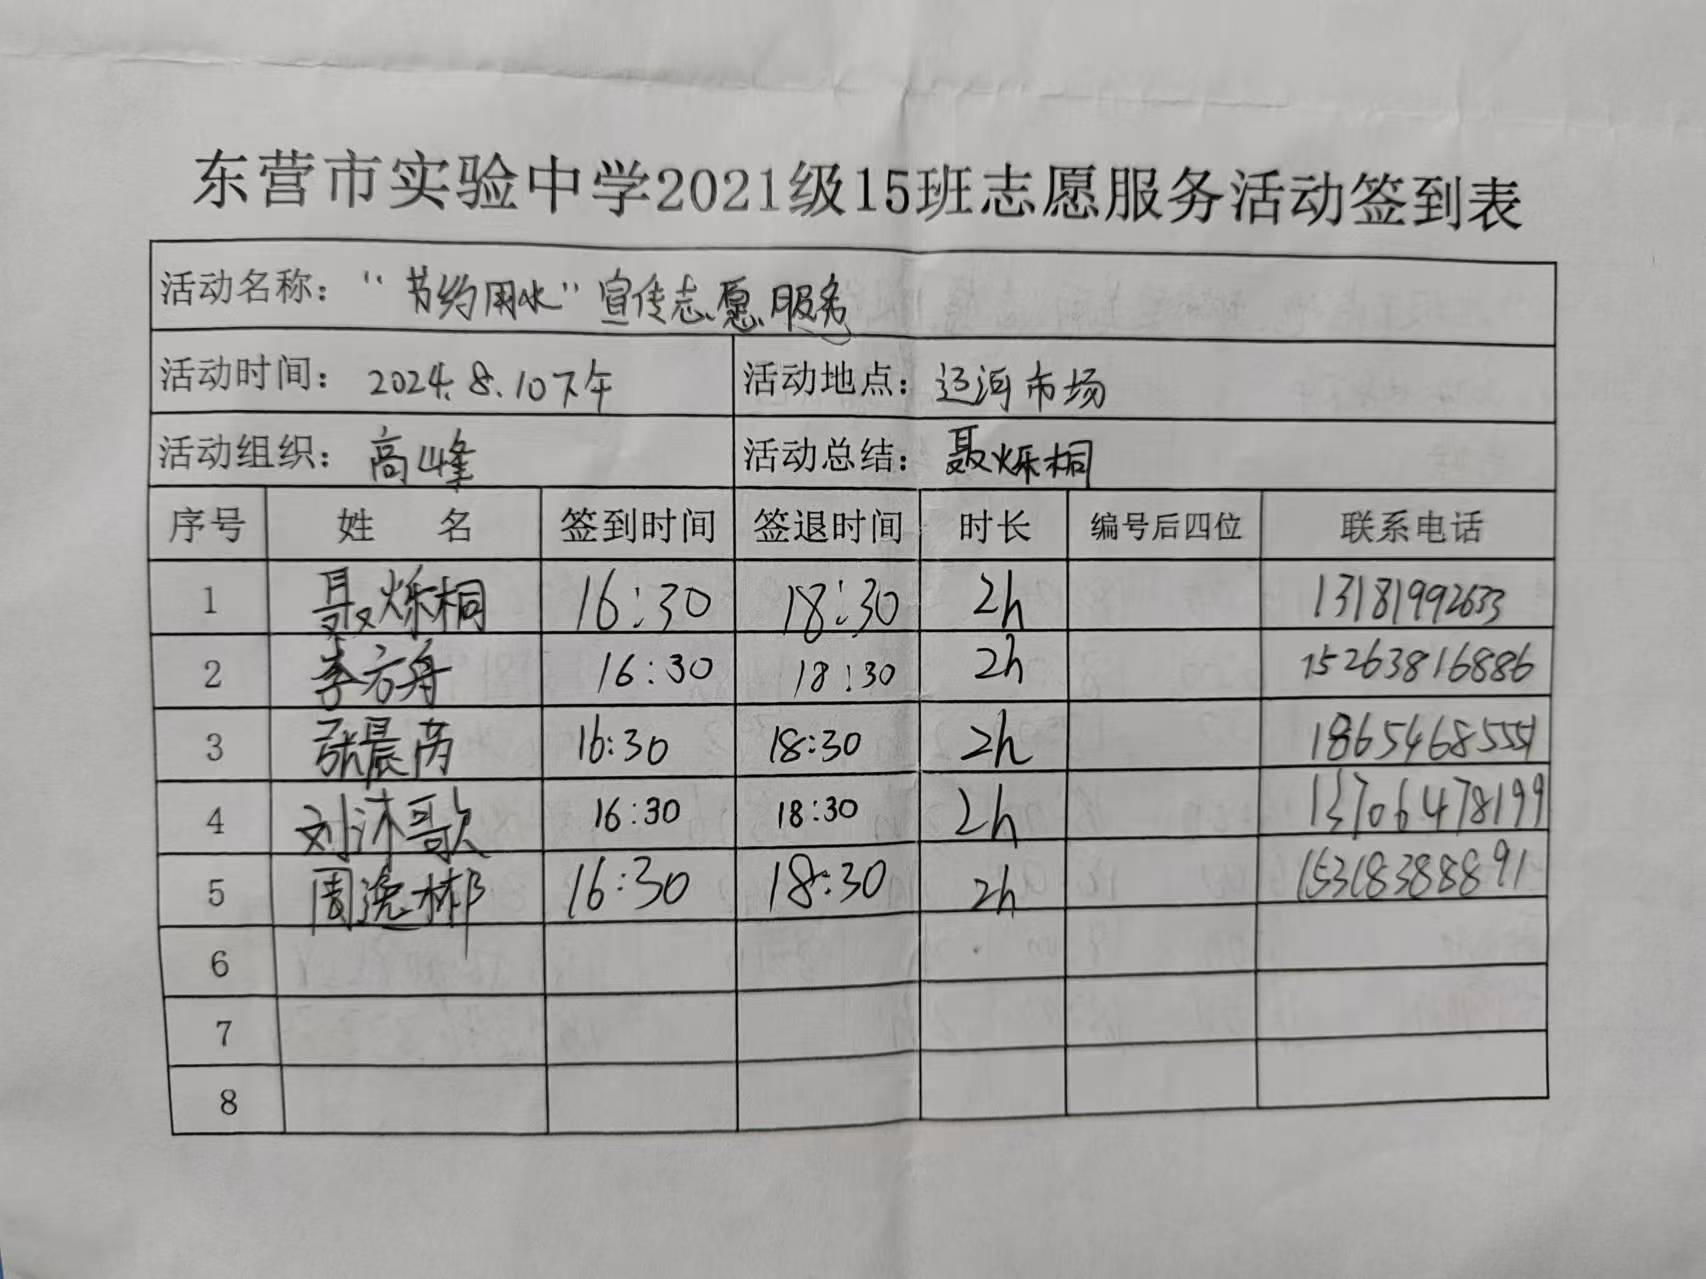 东营市实验中学2021级15班志愿服务活动签到表
活动名称：“节约用水”宣传志愿服务
活动时间：2024.8.10下午 活动地点：运河市场
活动组织：高峰 活动总结：聂烁桐
序号 姓 名 签到时间 签退时间 时长 编号后四位 联系电话
1 聂烁桐 16:30 18:30 2h 13181992633
2 李方舟 16:30 18:30 2h 15263816886
3 张晨芮 16:30 18:30 2h 18654685551
4 刘沐歌 16:30 18:30 2h 13706478199
5 周逸彬 16:30 18:30 2h 15318388891
6
7
8